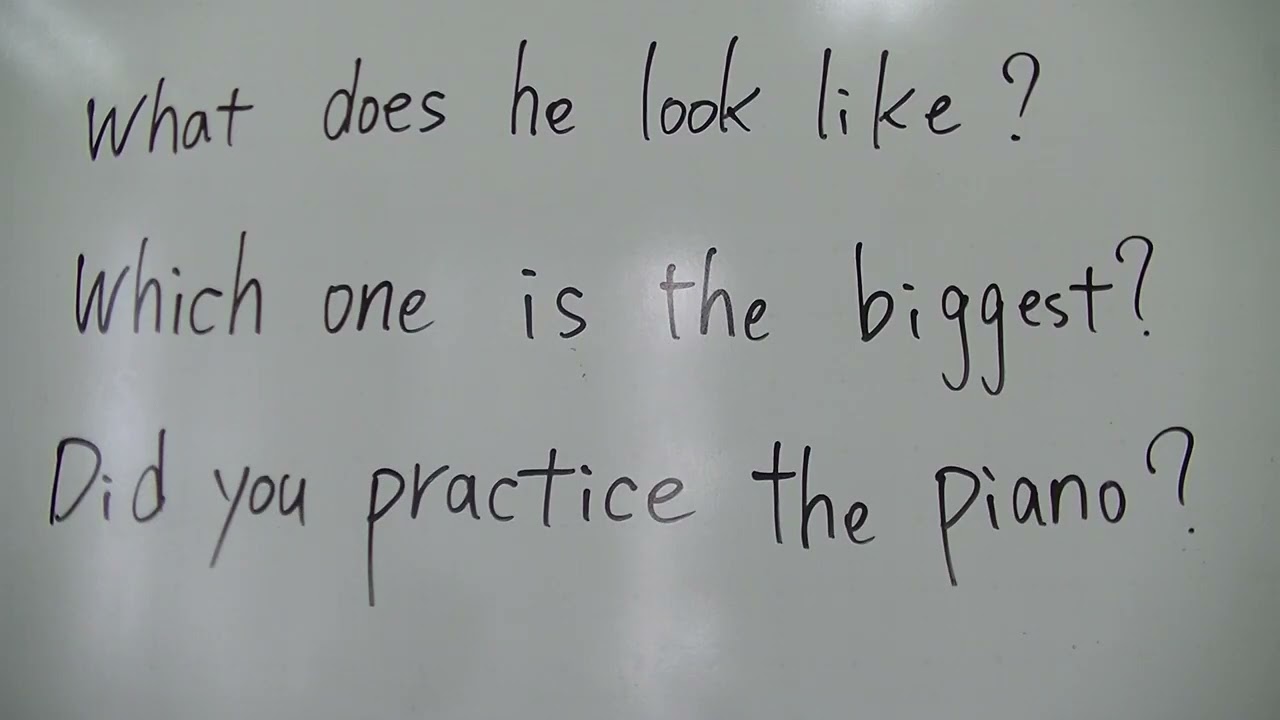 What does he look like?
Which one is the biggest?
Did you practice the piano?